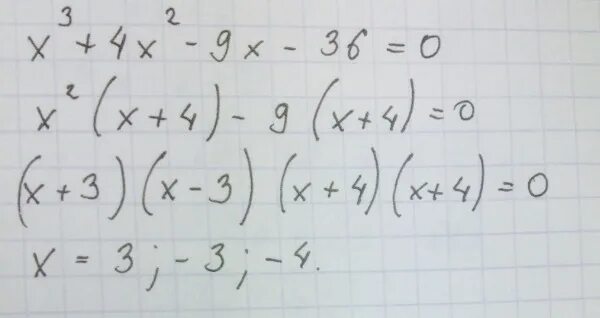 x³ + 4x² - 9x - 36 = 0
x² (x + 4) - 9 (x + 4) = 0
(x + 3) (x - 3) (x + 4) (x + 4) = 0
x = 3 ; - 3 ; - 4.